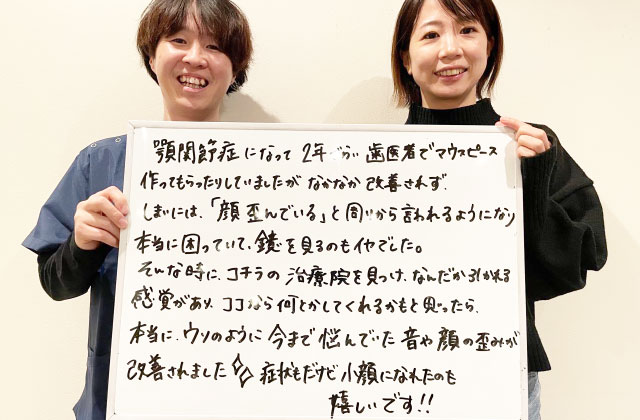 顎関節症になって 2年づらい 歯医者でマウスピース
作ってもらったりしていましたが なかなか 改善されず、
しまいには、「顔歪んでいる」と周りから言われるようになり
本当に困っていて、鏡を見るのもイヤでした。
そんな時に、コチラの治療院を見つけ、なんだか引かれる
感覚があり、ココなら何とかしてくれるかもと思ったら、
本当に、ウソのように 今まで悩んでいた 音や顔の歪みが
改善されました 症状もだけど 小顔になれたのも
嬉しいです!!